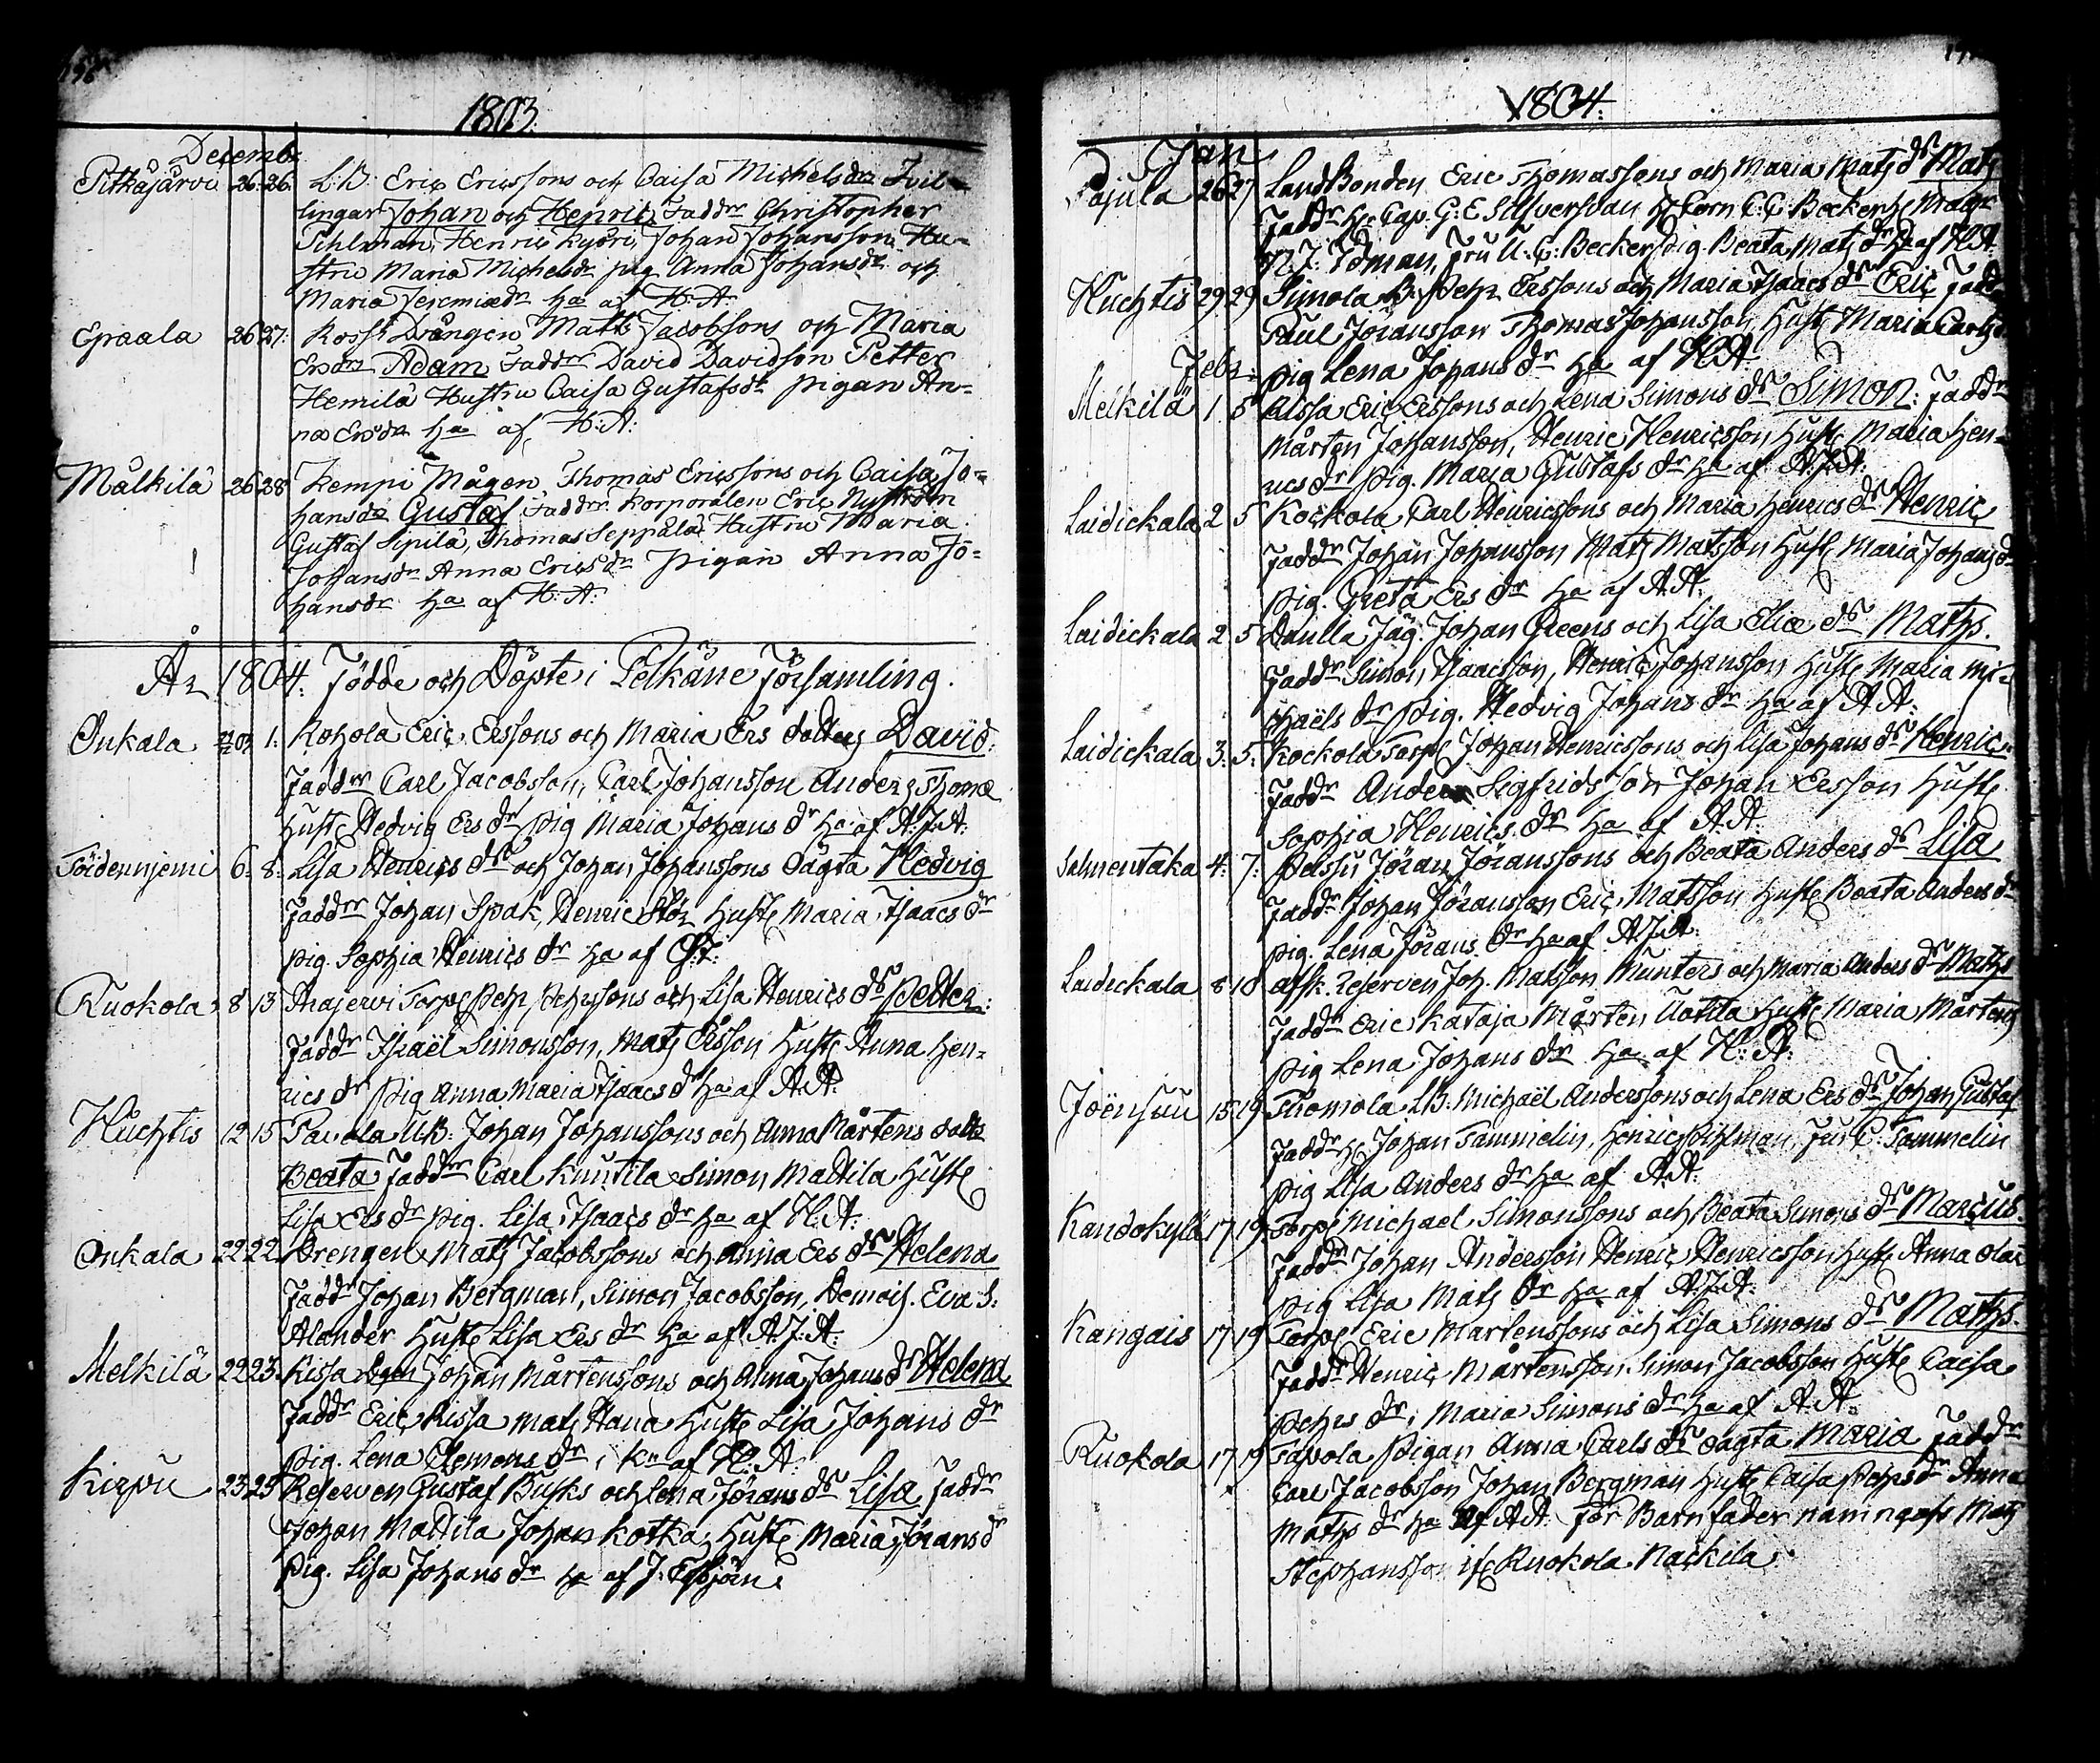 1803.
Decemb:
Pitkäjärvi 26. 26. L:B: Eric Ericssons och Caisa Michelsdr Tvil-
lingar Johan och Henric Faddr Christopher
Pihlman, Henric Johan Johansson, Hu-
stru Maria Michelsdr pig Anna Johansdr och
Maria Jeremiædr ha af H: A:
Epaala 26 27: Rossi Drängen Matts Jacobssons och Maria
Ersdrs Adam Faddr David Davidson Petter
Hemilä Hustru Caisa Gustafsdr pigan An-
na Ersdr ha af H: A:
Mälkilä 26 28 Kempi Mågen Thomas Ericssons och Caisa Jo-
hansdr Gustaf Faddrr Korporalen Eric Nyström
Gustaf Sipilä, Thomas Seppälä Hustru Maria
Johansdr Anna Ericsdr pigan Anna Jo-
hansdr ha af H: A:
År 1804. Födde och Döpte i Pelkäne Församling.
Onkala 1: Rohola Eric Erssons och Maria Ers dotters David.
Faddrr Carl Jacobsson, Carl Johansson Anders Thomæ
Hust Hedvig Ers dr pig Maria Johans dr ha af A: J: A:
6. 8. Lisa Henrics dr och Johan Johanssons Oägta Hedvig
Faddrr Johan Spak, Henric Stör Hust Maria Isaacs dr
pig. Sophia Henrics dr ha af
Ruokola 8 13 Arajervi Torp Pehr Pehrssons och Lisa Henrics dr Petter:
Faddr Israël Simonsson, Mats Ersson Hust Anna Hen-
rics dr pig Anna Maria Isaacs dr ha af A. A.
Huchtis 12 15 Pavola Johan Johanssons och Anna Mårtens dotts
Beata Faddrr Carl Kuutila Simon Mattila Hust
Lisa Ers dr pig. Lisa Isaacs dr ha af H. A:
Onkala 22 22 Drengen Mats Jacobssons och Anna Ers dr Helena
Faddr Johan Bergman, Simon Jacobsson, Demois. Eva S:
Alander Hust Lisa Ers dr ha af A: J: A:
Melkilä 22 23. Kissa Johan Mårtenssons och Anna Johans dr Helena
Faddr Eric Kissa Mats Hana Hust Lisa Johans dr
pig. Lena Clemens dr i Kn af H: A:
Kirpu 23 25 Reserven Gustaf Busks och Lena Jörans dr Lisa Faddr
Johan Mattila Johan Kotka, Hust Maria Jörans dr
pig. Lisa Johans dr ha af J:
1804.
Jan.
Pajula 26 27 LandBonden Eric Thomassons och Maria Mats dr Mats
Faddr Hr Cap. G: E Silfversvan Hr Corn C: G Becker Hr Mag
N. J: Idman, Fru U: C: Becker pig. Beata Mats dr ha af H. A
Huchtis 29 29 Simola B: Pehr Erssons och Maria Isaacs dr Eric Fadd
Paul Jöransson Thomas Johansson, Hust Maria Carls
Febr: pig Lena Johans dr ha af H. A:
Melkilä 1 5 Eric Erssons och Lena Simons dr Simon: Faddr
Mårten Johansson, Henric Henricsson Hust Maria Hen-
rics dr pig. Maria Gustafs dr ha af A: J: A:
Laidickala 2 5 Kockola Carl Henricssons och Maria Henrics dr Henric
Faddr Johan Johansson Mats Matsson Hust Maria Johans d
pig. Greta Ers dr ha af A. A.
Laidickala 2 5 Daulla Jäg. Johan Greens och Lisa Eliæ dr Maths.
Faddr Simon Isaacsson, Henric Johansson Hust Maria Mi-
chaëls dr pig. Hedvig Johans dr ha af A A:
Laidickala 3. 5. Kockola Torp Johan Henricssons och Lisa Johans dr Henric.
Faddr Anders Sigfridsson Johan Ersson Hust
Sophia Henrics dr ha af A. A.
Salmentaka 4. 7: Jöran Jöranssons och Beata Anders dr Lisa
Faddr Johan Jöransson Eric Matsson Hust Beata Anders d
pig. Lena Jörans dr ha af A. J. A.
Laidickala 8 18 afsk. Reserven Joh. Matsson Munters och Maria Anders dr Maths
Faddr Eric Kataja Mårten Uotila Hust Maria Mårtens
pig Lena Johans dr ha af H: A:
Joënsuu 15 19 Thomola LB: Michaël Anderssons och Lena Ers dr Johan Gustaf
Faddr Hr Johan Tammelin, Henric Pihlman, Fru C: Tammelin
pig Lisa Anders dr ha af A. A.
Kandokylä 17 19. Torp Michael Simonssons och Beata Simons dr Marcus.
Faddr Johan Andersson Henric Henricsson Hust Anna
pig Lisa Mats dr ha af A. J. A.
Kangais 17 19 Torp Eric Mårtenssons och Lisa Simons dr Maths.
Faddr Henric Mårtensson Simon Jacobsson Hust Caisa
Pehrs dr, Maria Simons dr ha af A. A.
Ruokola 17 19 Tapola Pigan Anna Carls dr oägta Maria Faddr
Carl Jacobsson Johan Bergman Hust Caisa Pehrs dr Anna
Maths dr ha af A A: för Barnfader namngafs Mats
Stephansson Ruokola Nackila